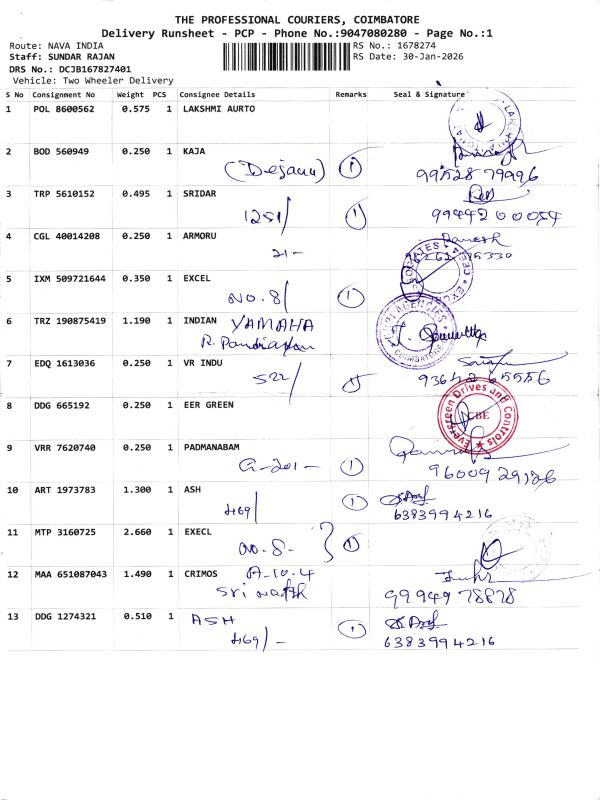 THE PROFESSIONAL COURIERS, COIMBATORE
Delivery Runsheet - PCP - Phone No.:9047080280 - Page No.:1
Route: NAVA INDIA RS No.: 1678274
Staff: SUNDAR RAJAN RS Date: 30-Jan-2026
DRS No.: DCJB167827401
Vehicle: Two Wheeler Delivery
S No Consignment No Weight PCS Consignee Details Remarks Seal & Signature
1 POL 8600562 0.575 1 LAKSHMI AURTO
2 BOD 560949 0.250 1 KAJA
(Dejavu) 1 99528 79996
3 TRP 5610152 0.495 1 SRIDAR
1251/ 1 9944200054
4 CGL 40014208 0.250 1 ARMORU Ganesh
21-
5 IXM 509721644 0.350 1 EXCEL
NO.8/ 1
6 TRZ 190875419 1.190 1 INDIAN YAMAHA
R. Pandiarajan
7 EDQ 1613036 0.250 1 VR INDU
522/ 1 93642 65556
8 DDG 665192 0.250 1 EER GREEN
Evergreen Drives and Controls
CBE
9 VRR 7620740 0.250 1 PADMANABAM
G-201- 1 9600929126
10 ART 1973783 1.300 1 ASH
469/ 1 6383994216
11 MTP 3160725 2.660 1 EXECL
NO.8- 1
12 MAA 651087043 1.490 1 CRIMOS A-10.4
99949 78878
13 DDG 1274321 0.510 1 ASH
469/- 1 6383994216